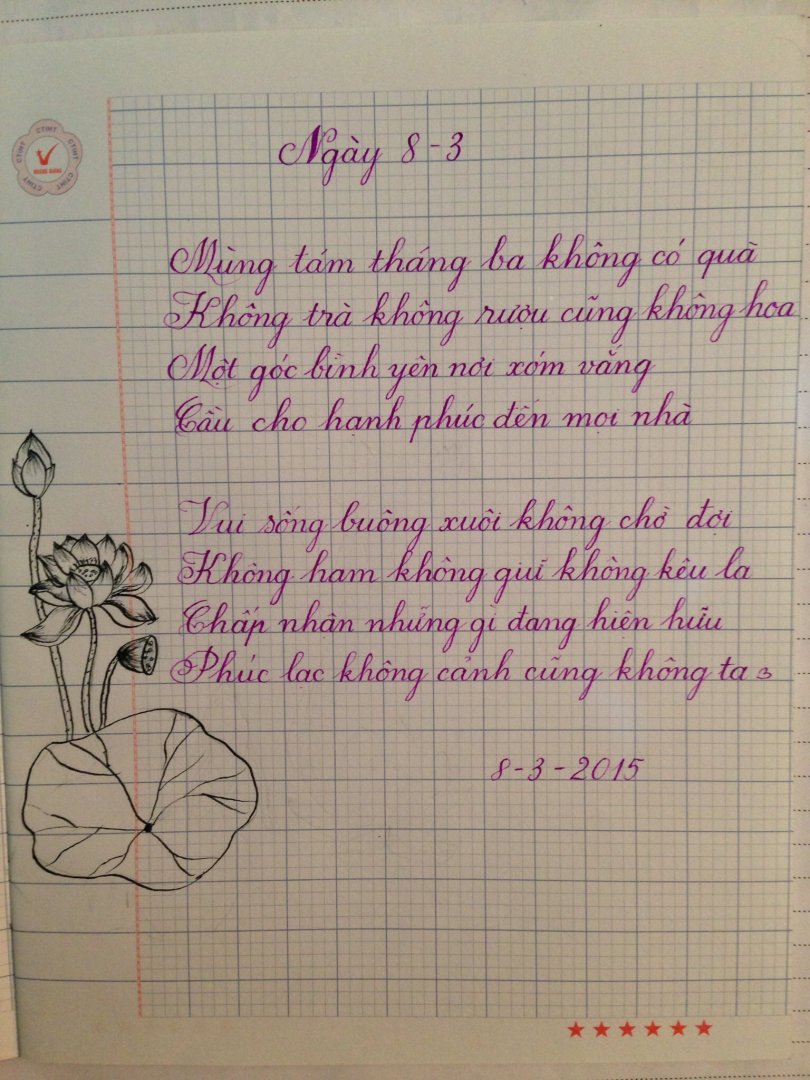 CTIHT CTIHT CTIHT CTIHT CTIHT
Ngày 8-3
Mùng tám tháng ba không có quà
Không trà không rượu cũng không hoa
Một góc bình yên nơi xóm vắng
Cầu cho hạnh phúc đến mọi nhà
Vui sống buông xuôi không chờ đợi
Không ham không giữ không kêu la
Chấp nhận những gì đang hiện hữu
Phúc lạc không cảnh cũng không ta
8-3-2015